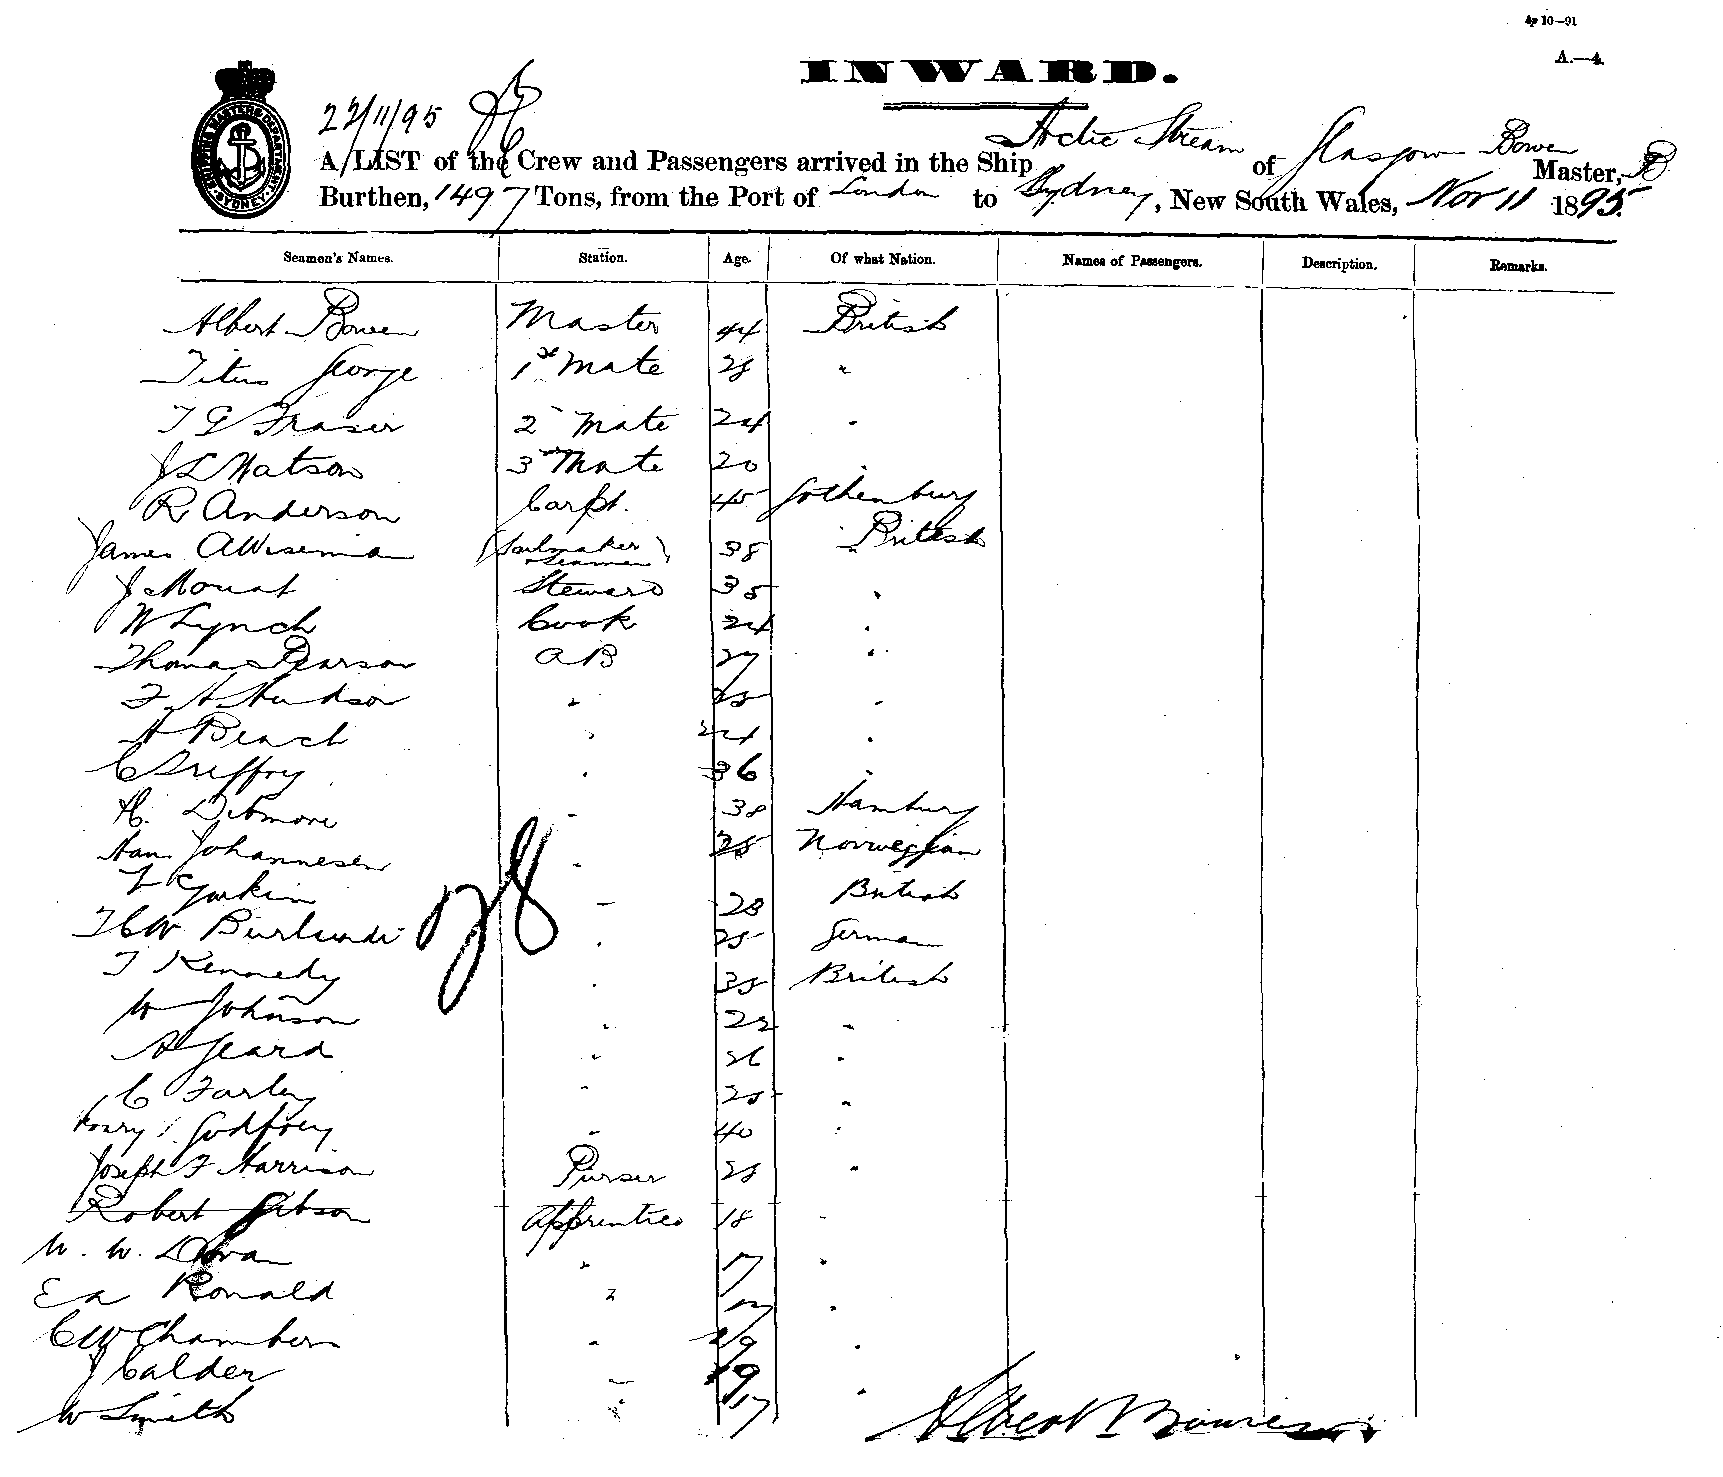 4p 10—91
A.—4.
INWARD.
SHIPPING MASTERS DEPARTMENT SYDNEY
22/11/95
A LIST of the Crew and Passengers arrived in the Ship Arctic Stream of Glasgow Bowen Master,
Burthen, 1497 Tons, from the Port of London to Sydney, New South Wales, Nov 11 1895.
Seamen's Names. Station. Age. Of what Nation. Names of Passengers. Description. Remarks.
Albert Bowen Master 44 British
Titus George 1st Mate 28 "
T G Fraser 2 Mate 24 "
J L Watson 3 Mate 20 "
R Anderson Carpt. 45 Gothenburg
James A Wiseman Sailmaker Seaman 38 British
J Mouat Steward 35 "
W Lynch Cook 24 "
Thomas Pearson AB 27 "
F. A. Hudson " 25 "
A Beach " 24 "
C Treffry " 36 "
H. Ditmore " 38 Hamburg
Hans Johannesen " 25 Norwegian
Gorkin " 28 British
T C W " 25 German
T Kennedy " 35 British
W Johnson " 22 "
A Geard " 26 "
C Farley " 25 "
Henry J. Godfrey " 40 "
Joseph F Harrison Purser 28 "
Robert Gibson Apprentice 18 "
W. W. " 17 "
E A Ronald " 17 "
C W Chambers " 19
J Calder " 19 "
W Smith " 17
Albert Bowen